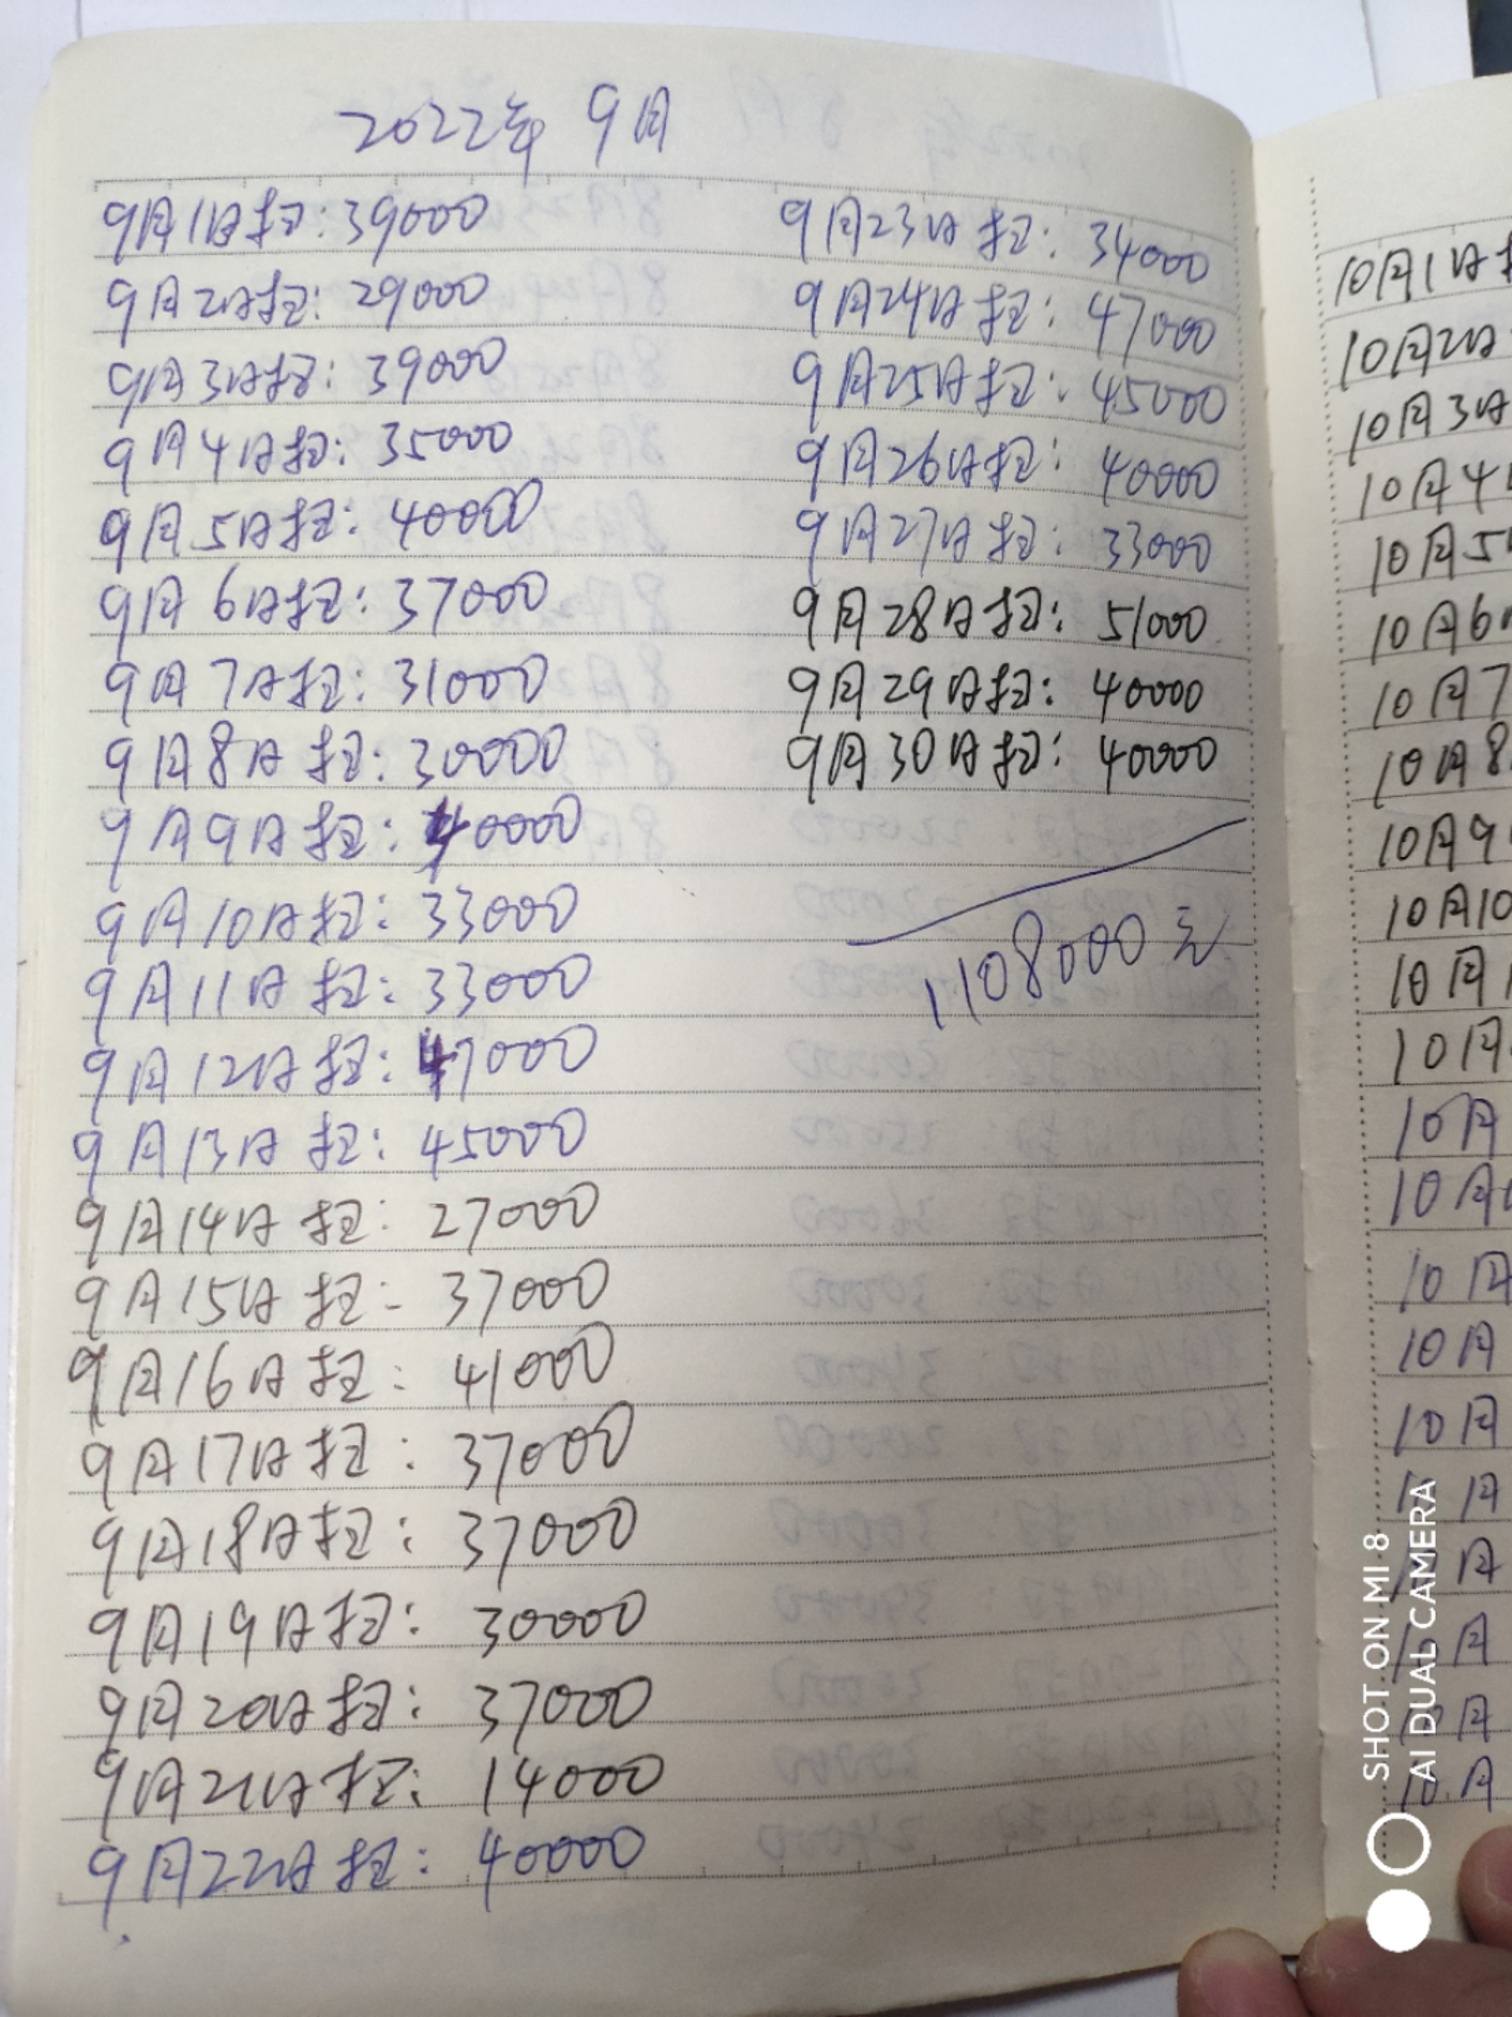 2022年 9月
9月1日扫:39000
9月2日扫:29000
9月3日扫:39000
9月4日扫:35000
9月5日扫:40000
9月6日扫:37000
9月7日扫:31000
9月8日扫:30000
9月9日扫:40000
9月10日扫:33000
9月11日扫:33000
9月12日扫:47000
9月13日扫:45000
9月14日扫:27000
9月15日扫:37000
9月16日扫:41000
9月17日扫:37000
9月18日扫:37000
9月19日扫:30000
9月20日扫:37000
9月21日扫:14000
9月22日扫:40000
9月23日扫:34000
9月24日扫:47000
9月25日扫:45000
9月26日扫:40000
9月27日扫:33000
9月28日扫:51000
9月29日扫:40000
9月30日扫:40000
1108000元
10月1日
10月2日
10月3日
10月4
10月5
10月6
10月7
10月8
10月9
10月10
10月
10月
10月
10月
10月
10月
10月
月
月
月
月
10月
SHOT ON MI 8
AI DUAL CAMERA